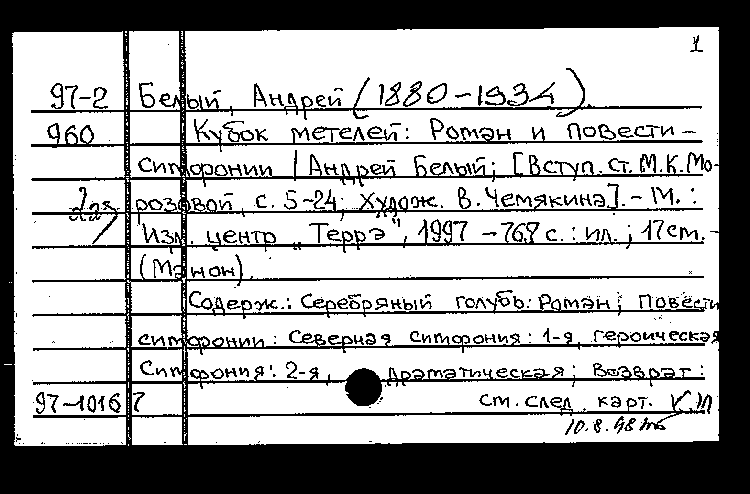 1
97-2 Белый, Андрей (1880-1934).
960 Кубок метелей: Роман и повести-
симфонии / Андрей Белый; [Вступ. ст. М.К.Мо-
розовой, с. 5-24; Худож. В. Чемякина]. - М. :
Изд. центр „Терра", 1997 - 768 с. : ил. ; 17см. -
(Манон).
Содерж.: Серебряный голубь: Роман; Повести
симфонии: Северная симфония: 1-я, героическая
Симфония: 2-я, драматическая; Возврат:
97-10167 см. след. карт.
10.8.98